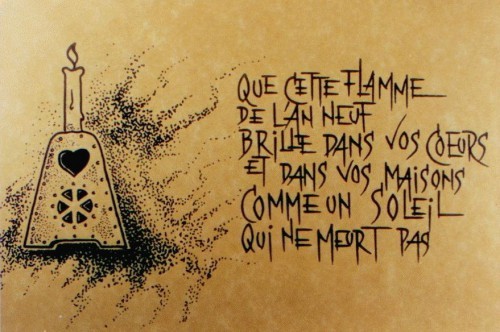 QUE CETTE FLAMME
DE L'AN NEUF
BRILLE DANS VOS COEURS
ET DANS VOS MAISONS
COMME UN SOLEIL
QUI NE MEURT PAS